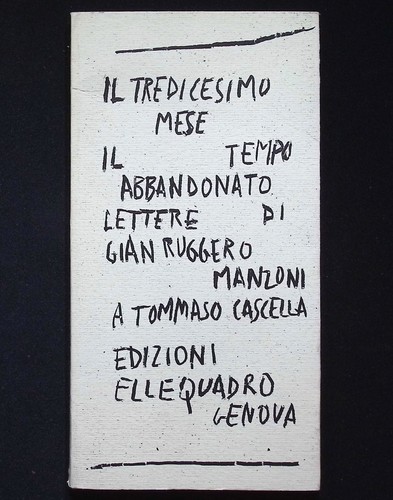 IL TREDICESIMO
MESE
IL TEMPO
ABBANDONATO
LETTERE DI
GIAN RUGGERO
MANZONI
A TOMMASO CASCELLA
EDIZIONI
ELLEQUADRO
GENOVA